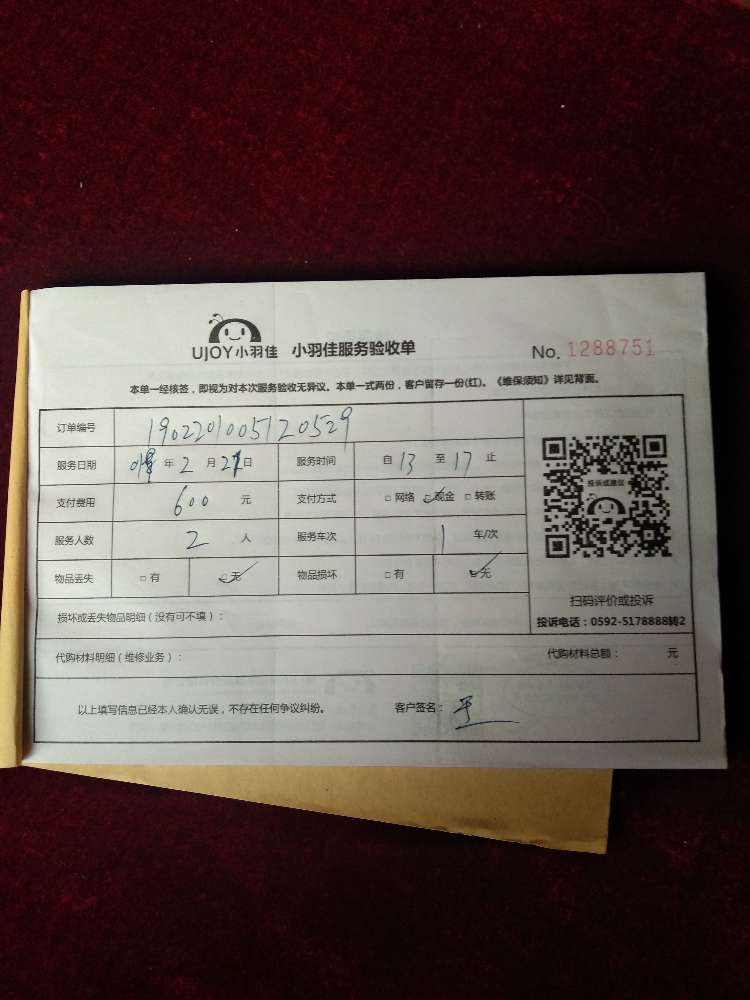 UJOY小羽佳 小羽佳服务验收单 No. 1288751
本单一经核签，即视为对本次服务验收无异议。本单一式两份，客户留存一份(红)。《维保须知》详见背面。
订单编号 1902201005120529
服务日期 年 2 月 日 服务时间 自 13 至 17 止
支付费用 600 元 支付方式 □ 网络 □ 现金 □ 转账
服务人数 2 人 服务车次 1 车/次
物品丢失 □ 有 □ 无 物品损坏 □ 有 □ 无
投诉或建议
扫码评价或投诉
投诉电话：0592-5178888转2
损坏或丢失物品明细（没有可不填）：
代购材料明细（维修业务）： 代购材料总额： 元
以上填写信息已经本人确认无误，不存在任何争议纠纷。 客户签名：